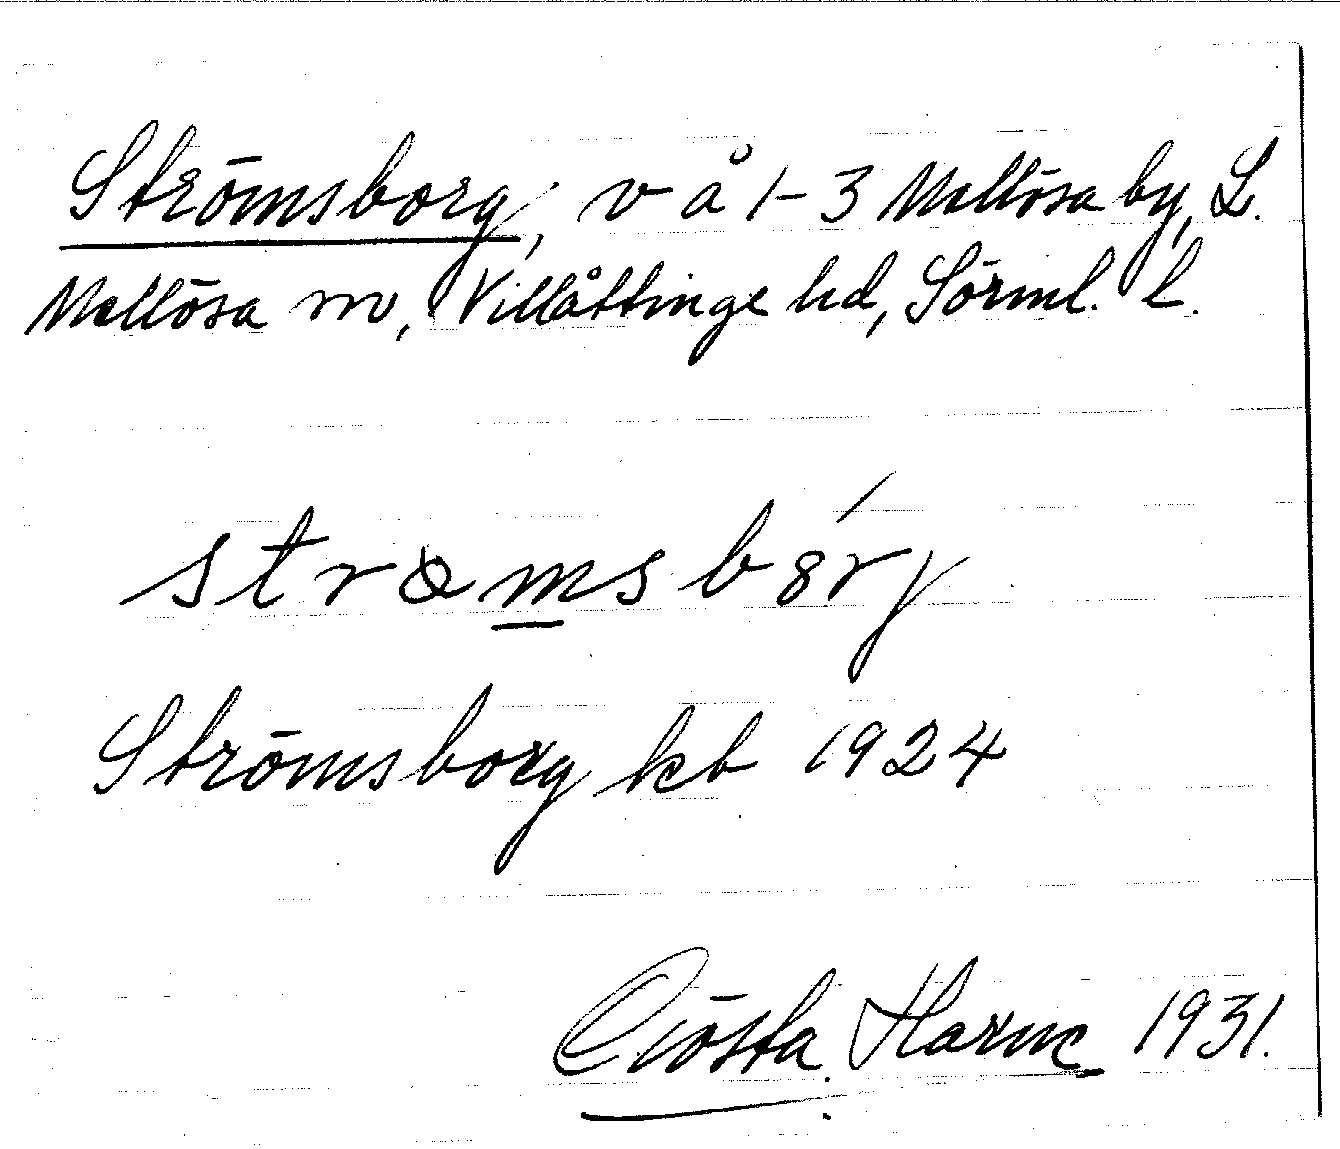 Strömsborg, v å 1-3 Mellösa by, L.
Mellösa sn, Villåttinge hd, Sörml. l.
strømsbórj
Strömsborg kb 1924
Gösta Harne 1931.